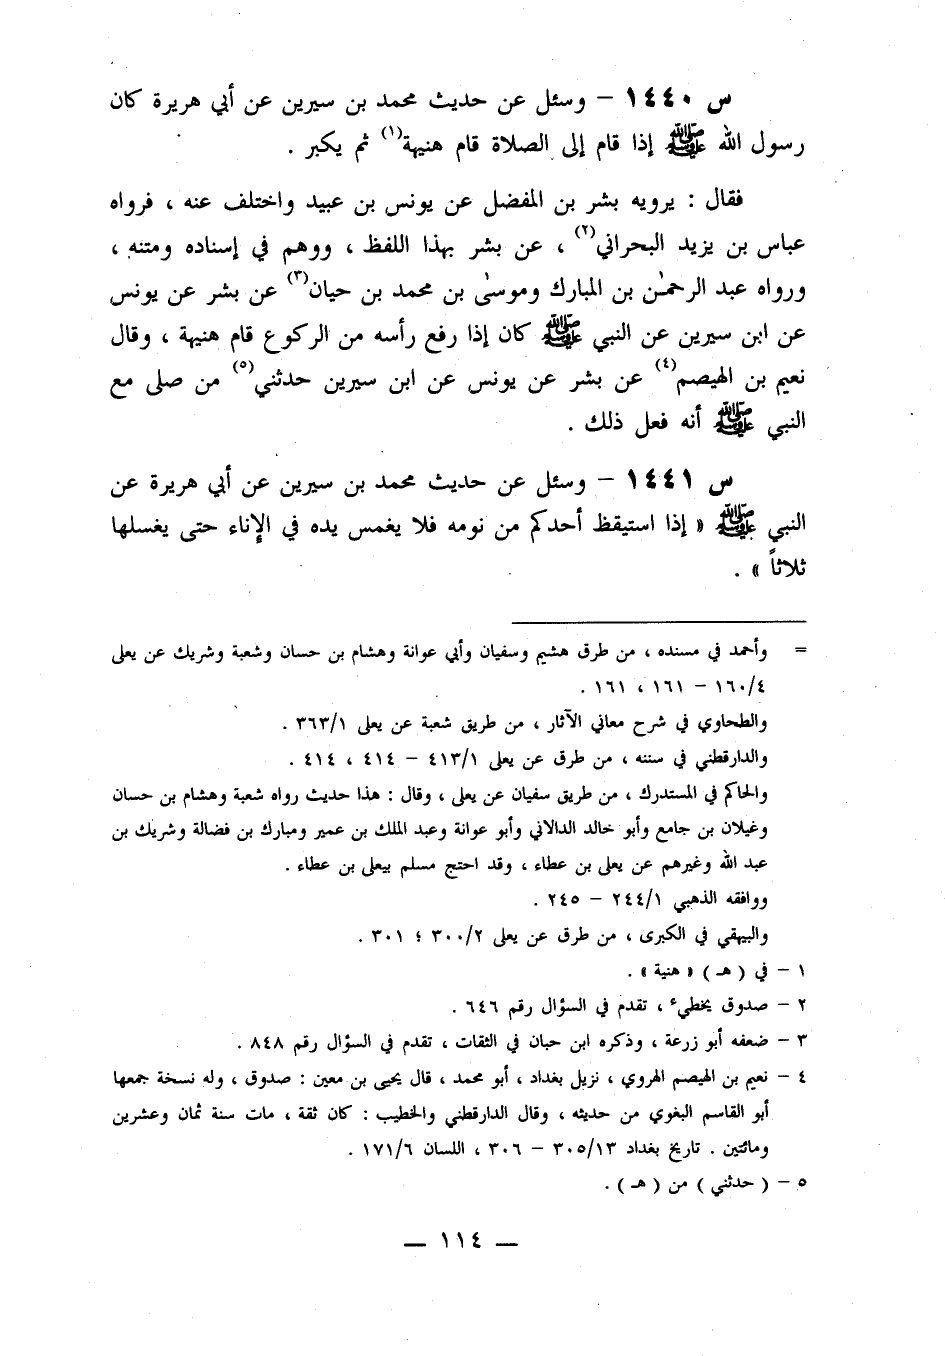 س ١٤٤٠ – وسئل عن حديث محمد بن سيرين عن أبي هريرة كان
رسول الله ﷺ إذا قام إلى الصلاة قام هنيهة(١) ثم يكبر .
فقال : يرويه بشر بن المفضل عن يونس بن عبيد واختلف عنه ، فرواه
عباس بن يزيد البحراني(٢) ، عن بشر بهذا اللفظ ، ووهم في إسناده ومتنه ،
ورواه عبد الرحمٰن بن المبارك وموسىٰ بن محمد بن حيان(٣) عن بشر عن يونس
عن ابن سيرين عن النبي ﷺ كان إذا رفع رأسه من الركوع قام هنيهة ، وقال
نعيم بن الهيصم(٤) عن بشر عن يونس عن ابن سيرين حدثني(٥) من صلى مع
النبي ﷺ أنه فعل ذلك .
س ١٤٤١ – وسئل عن حديث محمد بن سيرين عن أبي هريرة عن
النبي ﷺ « إذا استيقظ أحدكم من نومه فلا يغمس يده في الإناء حتى يغسلها
ثلاثاً » .
= وأحمد في مسنده ، من طرق هشيم وسفيان وأبي عوانة وهشام بن حسان وشعبة وشريك عن يعلى
٤/١٦٠ – ١٦١ ، ١٦١ .
والطحاوي في شرح معاني الآثار ، من طريق شعبة عن يعلى ١/٣٦٣ .
والدارقطني في سننه ، من طرق عن يعلى ١/٤١٣ – ٤١٤ ، ٤١٤ .
والحاكم في المستدرك ، من طريق سفيان عن يعلى ، وقال : هذا حديث رواه شعبة وهشام بن حسان
وغيلان بن جامع وأبو خالد الدالاني وأبو عوانة وعبد الملك بن عمير ومبارك بن فضالة وشريك بن
عبد الله وغيرهم عن يعلى بن عطاء ، وقد احتج مسلم بيعلى بن عطاء .
ووافقه الذهبي ١/٢٤٤ – ٢٤٥ .
والبيهقي في الكبرى ، من طرق عن يعلى ٢/٣٠٠ ؛ ٣٠١ .
١ – في ( هـ ) « هنية » .
٢ – صدوق يخطيء ، تقدم في السؤال رقم ٦٤٦ .
٣ – ضعفه أبو زرعة ، وذكره ابن حبان في الثقات ، تقدم في السؤال رقم ٨٤٨ .
٤ – نعيم بن الهيصم الهروي ، نزيل بغداد ، أبو محمد ، قال يحيى بن معين : صدوق ، وله نسخة جمعها
أبو القاسم البغوي من حديثه ، وقال الدارقطني والخطيب : كان ثقة ، مات سنة ثمان وعشرين
ومائتين . تاريخ بغداد ١٣/٣٠٥ – ٣٠٦ ، اللسان ٦/١٧١ .
٥ – ( حدثني ) من ( هـ ) .
— ١١٤ —